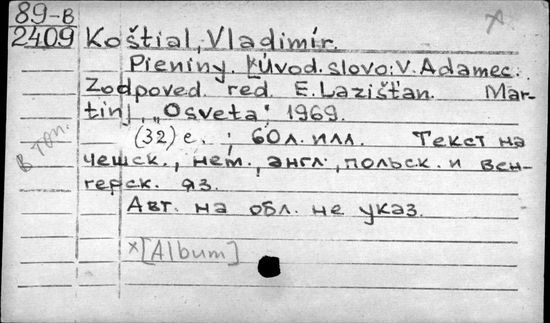 89-В
2409
Koštial, Vladimír.
Pieniny. [Úvod. slovo: V. Adamec.
Zodpoved. red. E. Lazišťan. Mar-
tin], "Osveta", 1969.
(32) с. ; 60 л. илл. Текст на
чешск., нем., англ., польск. и вен-
герск. яз.
Авт. на обл. не указ.
[Album]